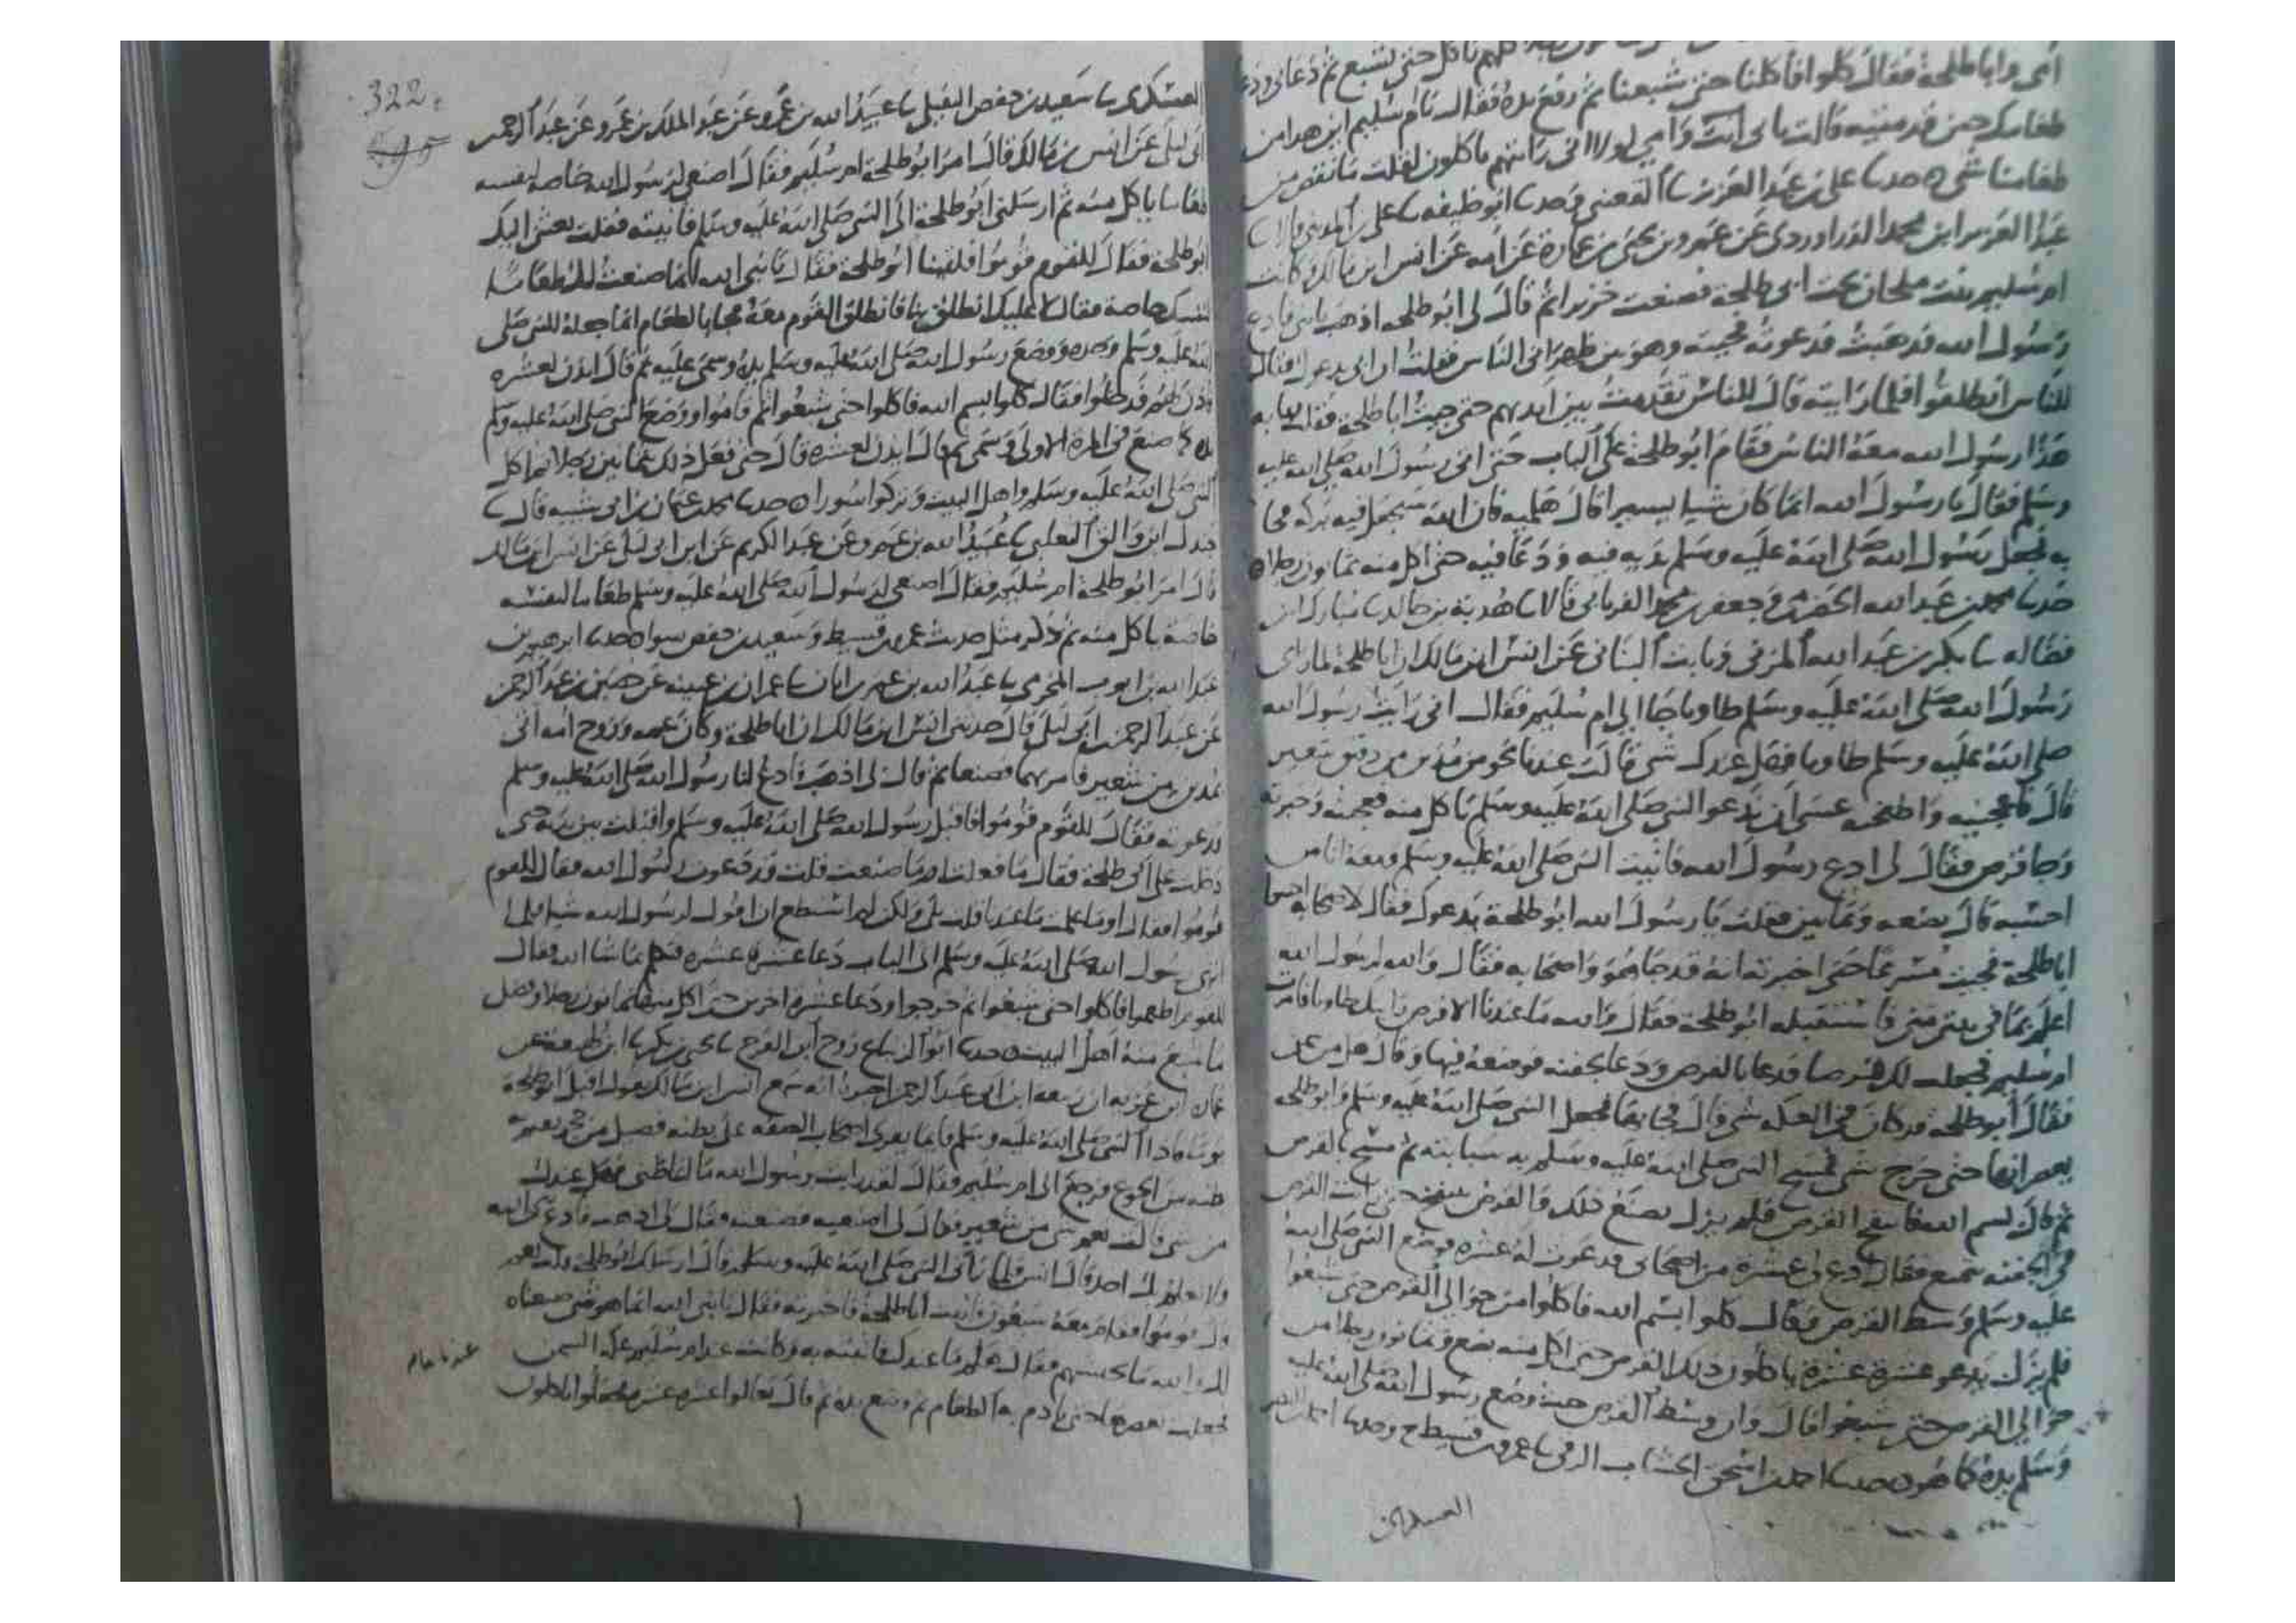 امى وابا طلحة فقال كلوا فاكلنا حتى شبعنا ثم رفع يده فقال يام سليم اين هدا من
طعامك حين قدمتيه قالت بابى انت وامي لولا انى رايتهم ياكلون لقلت ما نقص من
طعامنا شى حدثنا على بن عبد العزيز القعنبي وحدثنا ابو خليفه على بن المدينى قالا
عبد العزيز ابن محمد الدراوردى عن عمرو بن يحيى بن عمارة عن امه عن انس ابن مالك كانت
ام سليم بنت ملحان تحت ابى طلحة فصنعت خزيرا ثم قال لى ابو طلحه اذهب يابنى فادع
رسول الله فذهبت فدعوته فجيته وهو بين ظهرانى الناس فقلت ان ابى يدعوك فقال
للناس انطلقوا فلما رايته قال للناس تقدمت بين ايديهم حتى جيت ابا طلحة فقلت يابه
هذا رسول الله معه الناس فقام ابو طلحة على الباب حتى اتى رسول الله صلى الله عليه
وسلم فقال يا رسول الله انما كان شيا يسيرا قال هلميه فان الله سيجعل فيه بركه فجا
به فجعل رسول الله صلى الله عليه وسلم يديه فيه ودعا فيه حتى اكل منه ثمانون رجلا
حدثنا محمد بن عبد الله الحضرمى وجعفر بن محمد الفريابى قالا هدبة بن خالد مبارك ابن
فضاله بكر بن عبد الله المزنى وثابت البنانى عن انس ابن مالك ان ابا طلحة لما راى
رسول الله صلى الله عليه وسلم طاويا جا الى ام سليم فقال انى رايت رسول الله
صلى الله عليه وسلم طاويا فهل عندك شى قالت عندنا نحو من مدين من دقيق شعير
قال فاعجنيه واطبخيه عسى ان ندعو النبى صلى الله عليه وسلم ياكل منه فعجنته وخبزته
وجا قرص فقال لى ادع رسول الله فاتيت النبى صلى الله عليه وسلم ومعه اناس
احسبه قال بضعه وثمانين فقلت يا رسول الله ابو طلحة يدعوك فقال لاصحابه اجيبوا
ابا طلحة فجيت مسرعا حتى اخبرته انه قد جا هو واصحابه فقال والله لرسول الله
اعلم بما فى بيتى منى فاستقبله ابو طلحة فقال والله ما عندنا الا قرص رايتك طاويا فامرت
ام سليم فجعلت لك قرصا فدعا بالقرص ودعا بجفنه فوضعه فيها وقال هل من سمن
فقال ابو طلحة قد كان فى العكه شى قال فجا بها فجعل النبى صلى الله عليه وسلم وابو طلحه
يعصرانها حتى خرج شى فمسح النبى صلى الله عليه وسلم به سبابته ثم مسح بالقرص
ثم قال بسم الله فانتفخ القرص فلم يزل يصنع ذلك والقرص ينتفخ حتى رايت القرص
فى الجفنه يتميع فقال ادع لى عشرة من اصحابى فدعوت له عشرة فوضع النبى صلى الله
عليه وسلم وسط القرص وقال كلوا بسم الله فاكلوا من حوالى القرص حتى شبعوا
فلم يزل يدعو عشرة عشرة ياكلون ذلك القرص حتى اكل منه بضع وثمانون رجلا من
حوالى القرص حتى شبعوا قال وان وسط القرص حيث وضع رسول الله صلى الله عليه
وسلم يده كما هو حدثنا احمد بن اسحق الخشاب الرقى عمرو بن قسيط ح وحدثنا احمد
العسكرى
322
العسكرى سعيد بن حفص النفيلى عبيد الله بن عمرو عن عبد الملك بن عمرو عن عبد الرحمن
ابى ليلى عن انس بن مالك قال امر ابو طلحة ام سليم فقال اصنعى لرسول الله خاصه لنفسه
طعاما ياكل منه ثم ارسلنى ابو طلحة الى النبى صلى الله عليه وسلم فاتيته فقلت بعثنى اليك
ابو طلحة فقال للقوم قوموا فلقينا ابو طلحة فقال يا نبى الله انما صنعت لك طعاما
لنفسك خاصة فقال لا عليك انطلق بنا فانطلق القوم معه فجا بالطعام انما جعله للنبى صلى
الله عليه وسلم وحده ووضع رسول الله صلى الله عليه وسلم يده وسمى عليه ثم قال ايذن لعشره
فاذن لهم فدخلوا فقال كلوا بسم الله فاكلوا حتى شبعوا ثم قاموا ووضع النبى صلى الله عليه وسلم
يده كما صنع فى المرة الاولى وسمى ثم قال ايذن لعشرة قال حتى فعل ذلك بثمانين رجلا ثم اكل
النبى صلى الله عليه وسلم واهل البيت وتركوا سورا حدثنا محمد بن عثمان بن ابى شيبه قال
جندل ابن والق التغلبى عبيد الله بن عمرو عن عبد الكريم عن ابن ابى ليلى عن انس ابن مالك
قال امر ابو طلحة ام سليم فقال اصنعى لرسول الله صلى الله عليه وسلم طعاما لنفسه
خاصة ياكل منه ثم ذكر مثل حديث عمرو بن قسيط وسعيد بن حفص سوا حدثنا ابرهيم بن
عبد الله بن ايوب المخرمى عبد الله بن عمر بن ابان عمران بن عيينه عن حصين بن عبد الرحمن
عن عبد الرحمن ابى ليلى قال حدثنى انس ابن مالك ان ابا طلحة وكان عمه وزوج امه اتى
بمدين من شعير فامر بهما فصنعا ثم قال لى اذهب فادع لنا رسول الله صلى الله عليه وسلم
فدعوته فقال للقوم قوموا فاقبل رسول الله صلى الله عليه وسلم واقبلت بين يديه حتى
دخلت على ابى طلحة فقال ما فعلت او ما صنعت قلت قد دعوت رسول الله فقال للقوم
قوموا فقال اوما علمت ما عندنا قلت بلى ولكن لم استطع ان اقول لرسول الله شيا فلما
انتهى رسول الله صلى الله عليه وسلم الى الباب دعا عشرة عشرة فتكلم بما شا الله فقال
للقوم اطعموا فاكلوا حتى شبعوا ثم خرجوا ودعا عشرة اخرين حتى اكل منها ثمانون رجلا وفضل
ما شبع منه اهل البيت حدثنا ابو الزنباع روح ابن الفرج يحيى بن بكير ابن لهيعة عن
عمارة ابن غزيه ان ربيعه ابن ابى عبد الرحمن اخبره انه سمع انس ابن مالك يقول اقبل ابو طلحة
يوما فاذا النبى صلى الله عليه وسلم قايما يقرى اصحاب الصفه على بطنه فصيل من حجر يقيم به
بطنه من الجوع فرجع الى ام سليم فقال لقد رايت رسول الله فهل عندك
من شى قالت نعم شى من شعير فقال لى اصنعيه فصنعته وقال لى اذهب فادع نبى الله
ولا تعلم به احد قال انس فلما رانى النبى صلى الله عليه وسلم قال ارسلك ابو طلحة قلت نعم
قال قوموا فقام معه سبعون فاتيت ابا طلحة فاخبرته فقال يا نبى الله انما هو شى صنعناه
لك والله ما يجيبهم فقال هلم ما عندك فاتيته به وكانت عند ام سليم عكه السمن
فجعلت تعصرها حتى يادم به الطعام ثم وضع يده ثم قال تعالوا عشرة عشرة فجعلوا ياكلون